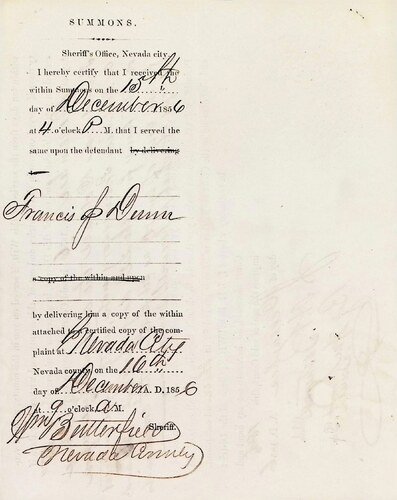 SUMMONS.
Sheriff's Office, Nevada city
I hereby certify that I received the
within Summons on the 15th
day of December 1856
at 4 o'clock P M. that I served the
same upon the defendant by delivering
Francis J Dunn
a copy of the within and upon
by delivering him a copy of the within
attached to a certified copy of the com-
plaint at Nevada City
Nevada county, on the 16th
day of December A. D. 1856
at 9 o'clock A M.
Wm Butterfield Sheriff.
Nevada County